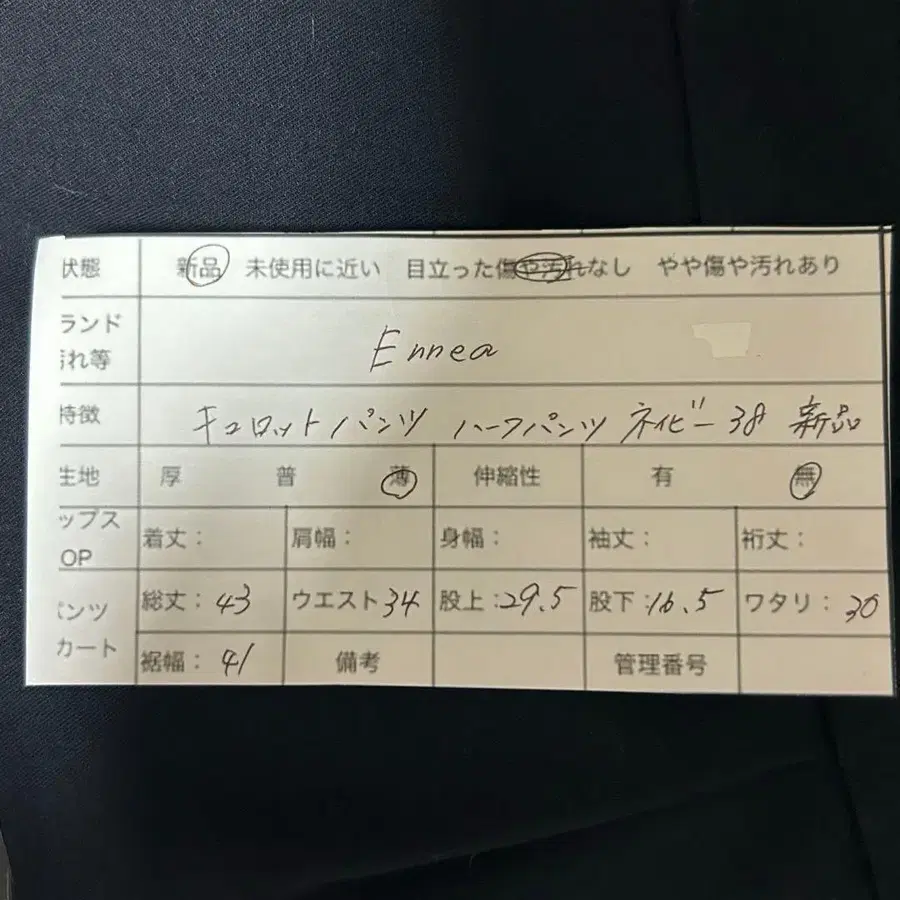 状態 新品 未使用に近い 目立った傷や汚れなし やや傷や汚れあり
ランド
汚れ等 Ennea
特徴 キュロットパンツ ハーフパンツ ネイビー 38 新品
生地 厚 普 薄 伸縮性 有 無
ップス
OP 着丈： 肩幅： 身幅： 袖丈： 裄丈：
パンツ 総丈：43 ウエスト34 股上：29.5 股下：16.5 ワタリ：30
カート 裾幅：41 備考 管理番号